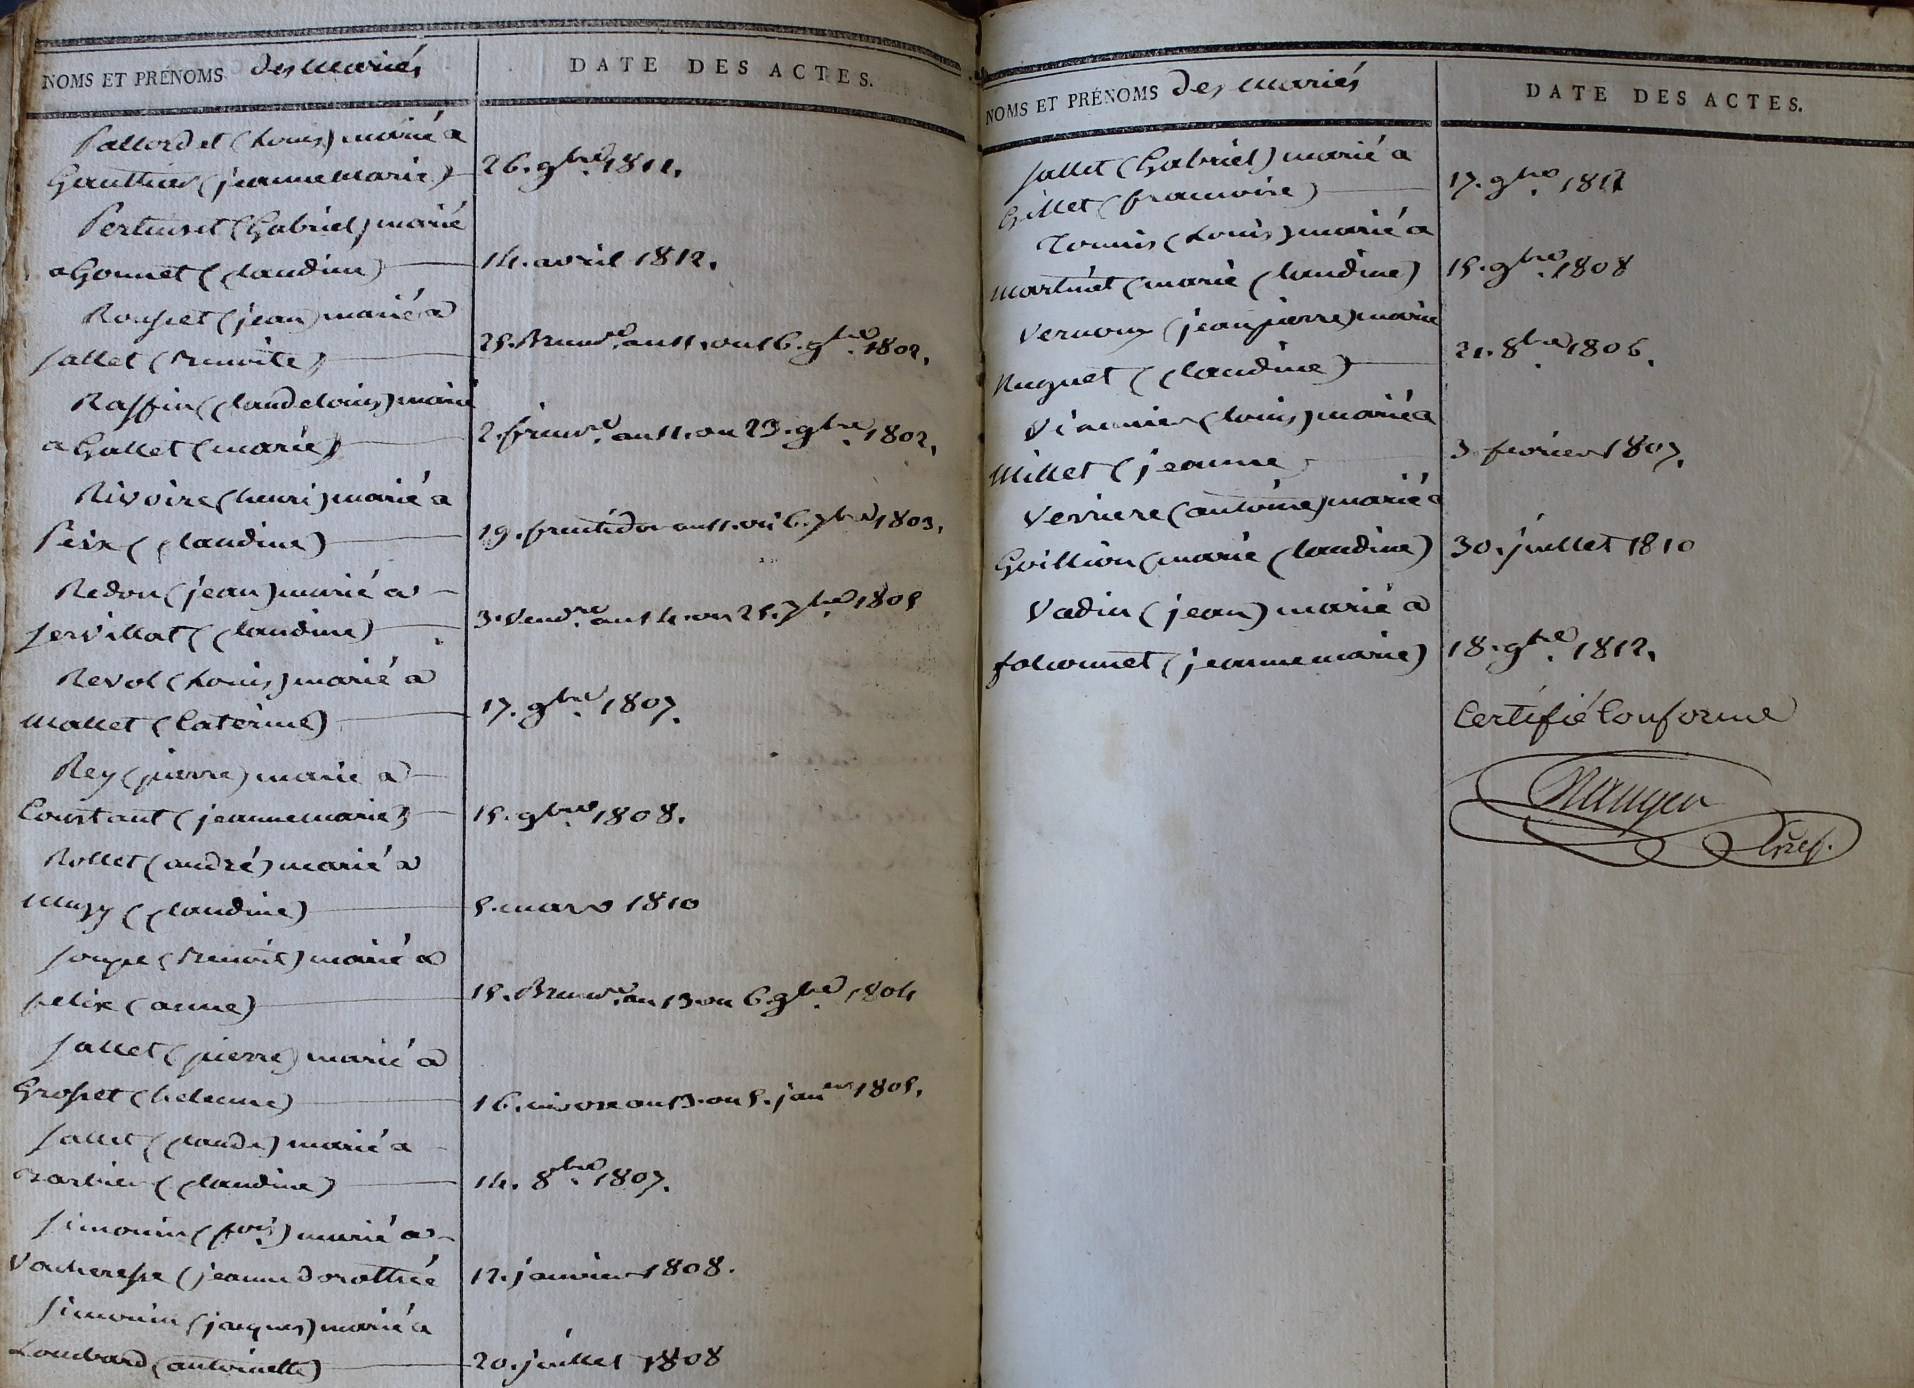 NOMS ET PRÉNOMS des mariés
DATE DES ACTES.
Pallordet (Louis) marié a
Gauthier (jeanne marie)
26. 9bre. 1811.
Pertuiset (Gabriel) marié
a Gonnet (Claudine)
14. avril 1812.
Rousset (jean) marié a
Sallet (Benoite)
25. Brume. an 11. ou 16. 9bre. 1802.
Raffin (Claude louis) marié
a Gallet (marie)
2. frimre. an 11. ou 23. 9bre. 1802.
Rivoire (henri) marié a
Peix (Claudine)
19. fructidor an 11. ou 6. 7bre 1803.
Redon (jean) marié a
Servillat (Claudine)
3. Vendre. an 14. ou 25. 7bre. 1805
Revol (Louis) marié a
Mallet (Caterine)
17. 9bre. 1807.
Rey (pierre) marié a
Constant (jeanne marie)
15. 9bre. 1808.
Rollet (andré) marié a
Muzy (Claudine)
5. mars 1810
Soupe (Benoit) marié a
felix (anne)
15. Brume. an 13. ou 6. 9bre. 1804
Sallet (pierre) marié a
Grosset (helenne)
16. nivose an 13. ou 5. janer 1805.
Sallet (Claude) marié a
Barbier (Claudine)
14. 8bre. 1807.
Simonin (fois) marié a
Vacheresse (jeanne Dorothée
12. janvier 1808.
Simonin (jacques) marié a
Lombard (antoinette)
20. juillet 1808
NOMS ET PRÉNOMS des mariés
DATE DES ACTES.
Sallet (Gabriel) marié a
Gillet (francoise)
17. 9bre. 1812
Tonnis (Louis) marié a
Martinet (marie Claudine)
15. 9bre. 1808
Vernoux (jean pierre) marié
Nuguet (Claudine)
21. 8bre 1806.
Viannier (louis) marié a
Millet (jeanne)
3 fevrier 1807.
Verriere (antoine) marié a
Goillion (marie Claudine)
30. juillet 1810
Vadin (jean) marié a
falconnet (jeanne marie)
18. 9bre. 1812.
Certifié Conforme
Greff.